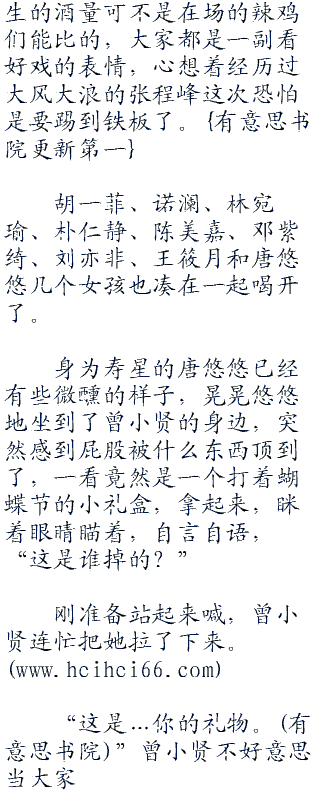 生的酒量可不是在场的辣鸡
们能比的，大家都是一副看
好戏的表情，心想着经历过
大风大浪的张程峰这次恐怕
是要踢到铁板了。{有意思书
院更新第一}
胡一菲、诺澜、林宛
瑜、朴仁静、陈美嘉、邓紫
绮、刘亦非、王筱月和唐悠
悠几个女孩也凑在一起喝开
了。
身为寿星的唐悠悠已经
有些微醺的样子，晃晃悠悠
地坐到了曾小贤的身边，突
然感到屁股被什么东西顶到
了，一看竟然是一个打着蝴
蝶节的小礼盒，拿起来，眯
着眼睛瞄着，自言自语，
“这是谁掉的？”
刚准备站起来喊，曾小
贤连忙把她拉了下来。
(www.hcihci66.com)
“这是…你的礼物。(有
意思书院)”曾小贤不好意思
当大家